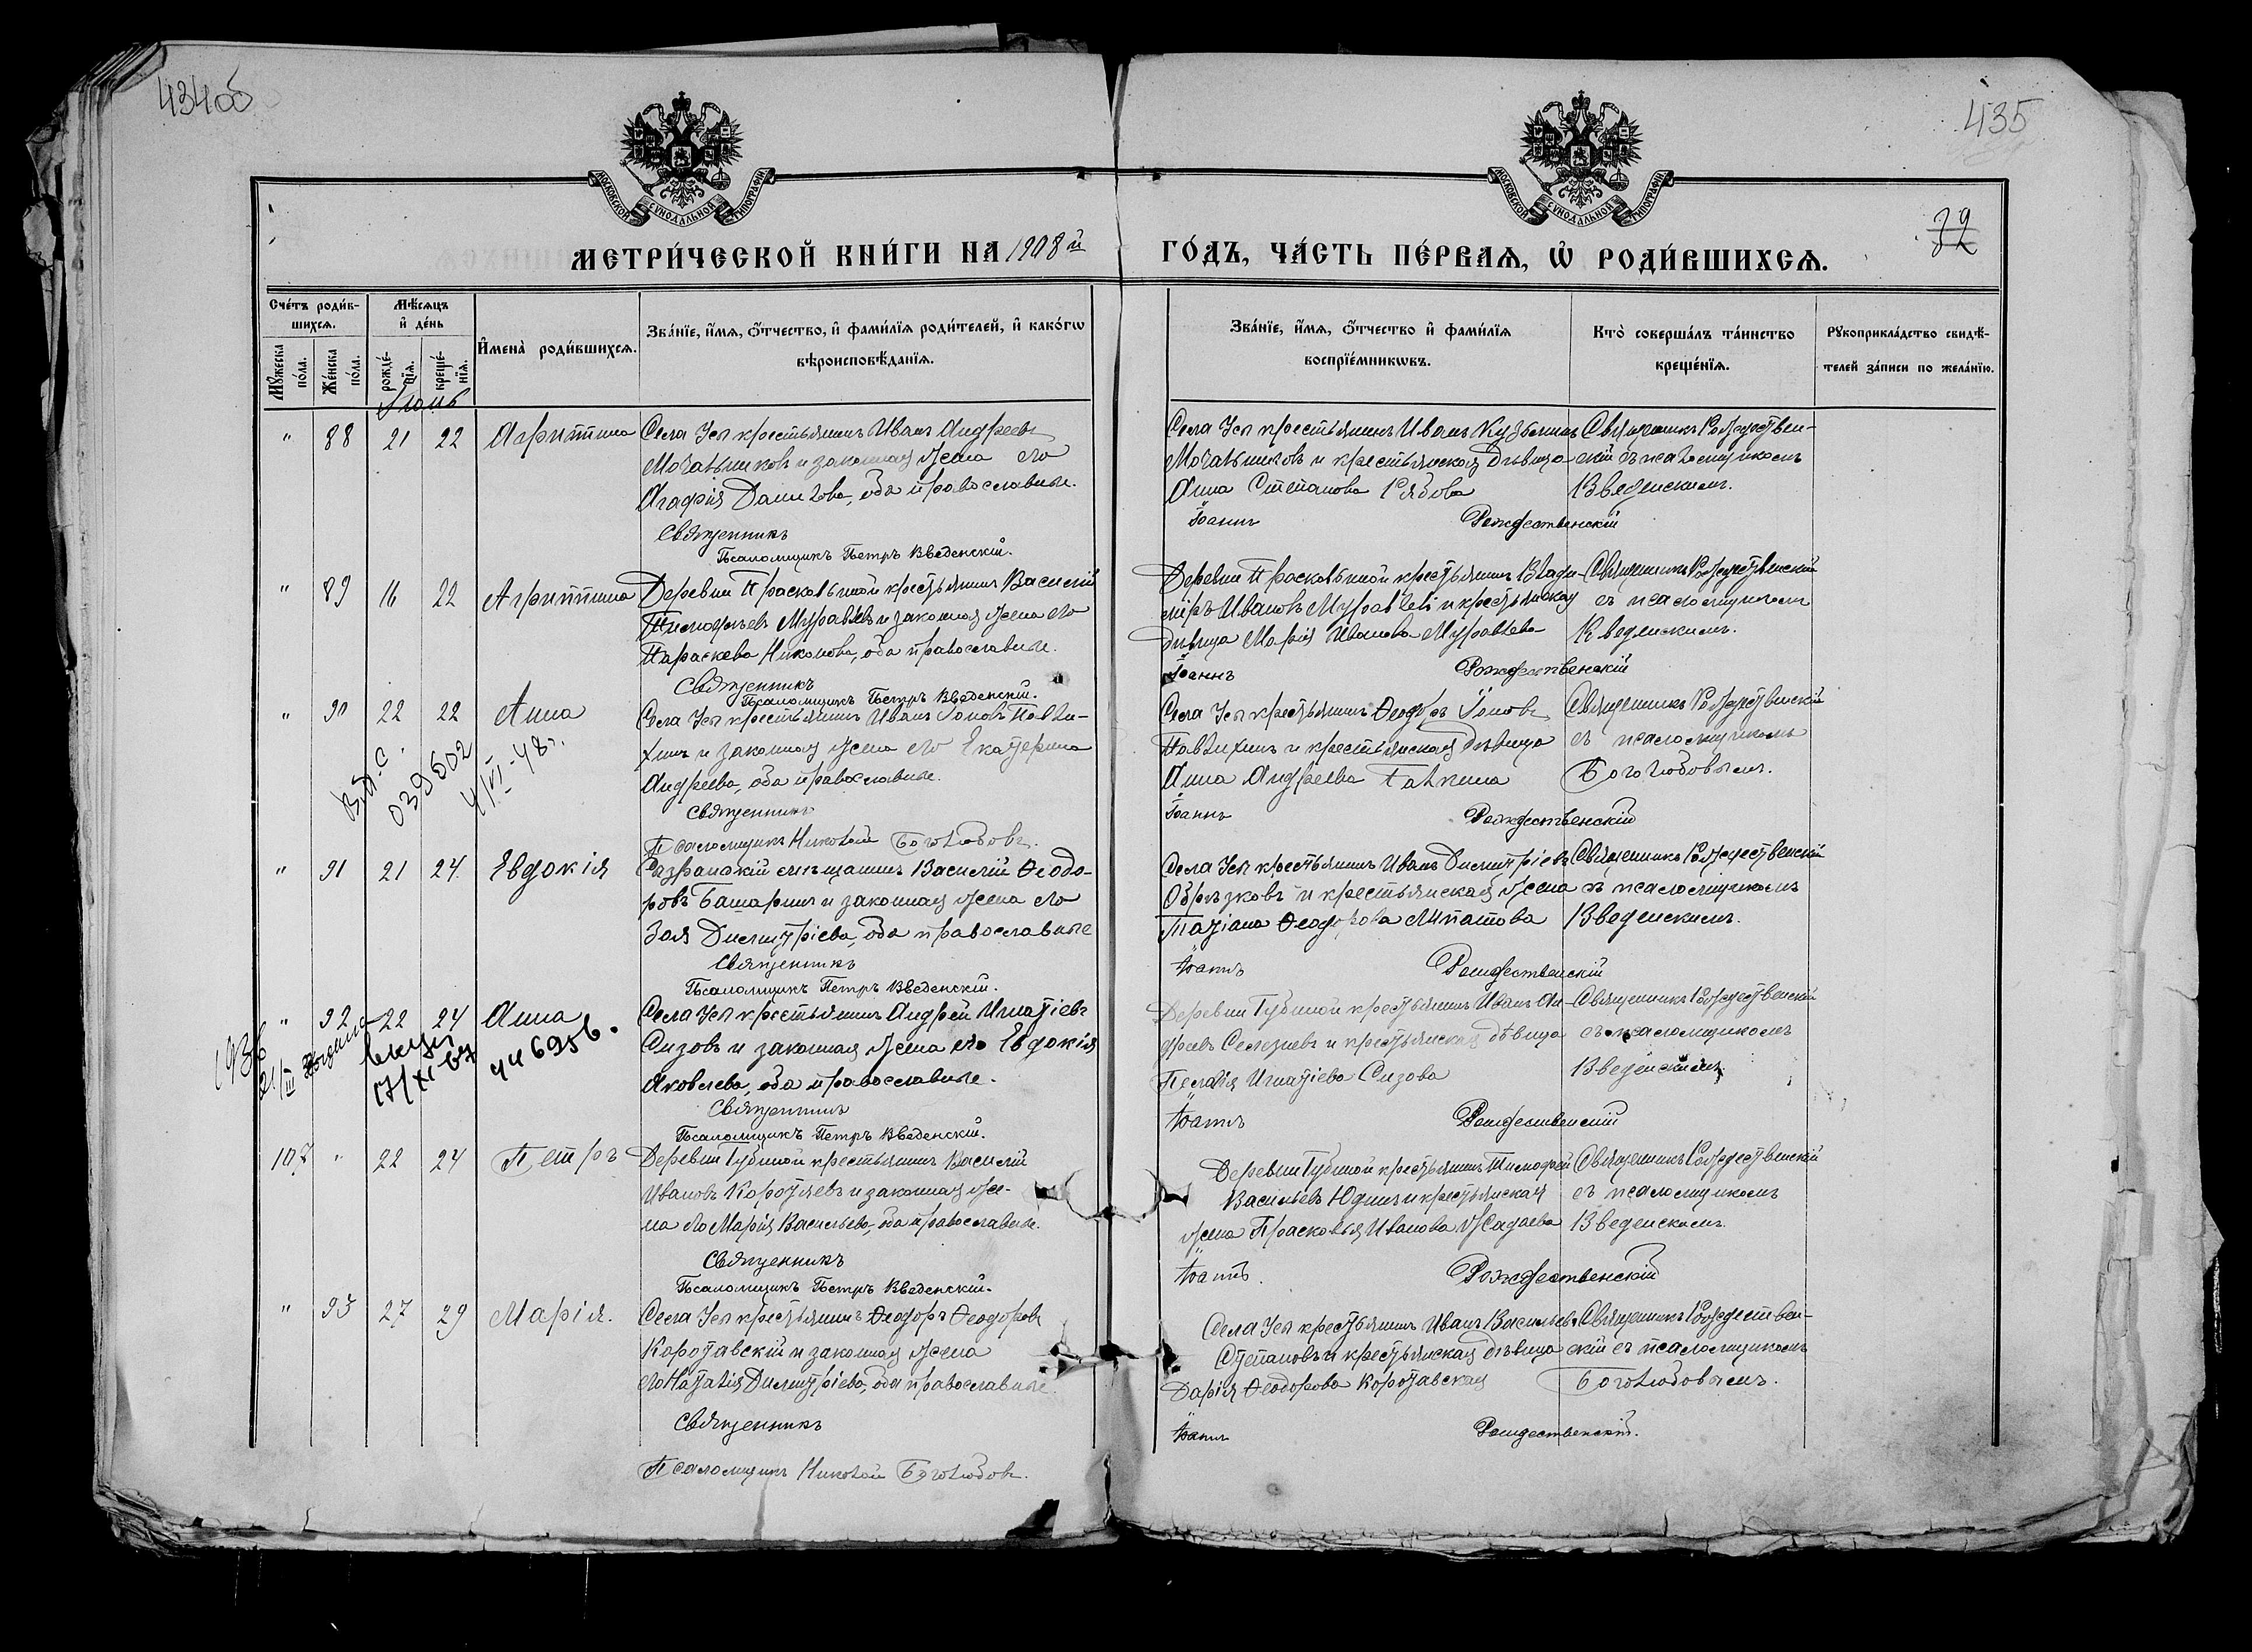 434об
435
МОСКОВСКОЙ СѴНОДАЛЬНОЙ ТИПОГРАФІИ
МОСКОВСКОЙ СѴНОДАЛЬНОЙ ТИПОГРАФІИ
32
МЕТРИ́ЧЕСКОЙ КНИ́ГИ НА 1908й ГО́ДЪ, ЧА́СТЬ ПЕ́РВАѦ, Ѡ РОДИ́ВШИХСѦ.
Сче́тъ роди́в-
шихсѧ.
Мѣ́сѧцъ
и҆ де́нь
Мꙋ́жеска по́ла.
Же́нска по́ла.
рожде́-
нїѧ.
креще́-
нїѧ.
И҆мена̀ роди́вшихсѧ.
Зва́нїе, и҆́мѧ, ѻ҆́тчество, и҆ фами́лїѧ роди́телей, и҆ како́гѡ
вѣроисповѣ́данїѧ.
Зва́нїе, и҆́мѧ, ѻ҆́тчество и҆ фами́лїѧ
воспрїе́мникѡвъ.
Кто̀ соверша́лъ та́инство
креще́нїѧ.
Рꙋкоприкла́дство свидѣ́-
телей за́писи по жела́нїю.
" 88 21 22 Агриппина Села Усп крестьянинъ Иванъ Андреевъ
и законная жена его
Агафія Данилова, оба православные.
Священникъ
Псаломщикъ Петръ Введенскій.
Села Усп крестьянинъ Иванъ Кузьминъ
и крестьянская дѣвица
Анна Степанова Рябова
Іоаннъ Рождественскій
Священникъ Рождествен-
скій съ псаломщикомъ
Введенскимъ.
" 89 16 22 Агриппина Деревни Прасковьиной крестьянинъ Василій
Тимофѣевъ Муравьевъ и законная жена его
Параскева Никонова, оба православные.
Священникъ
Псаломщикъ Петръ Введенскій.
Деревни Прасковьиной крестьянинъ Влади-
міръ Ивановъ Муравьевъ и крестьянская
дѣвица Марія Иванова Муравьева
Іоаннъ Рождественскій
Священникъ Рождественскій
съ псаломщикомъ
Введенскимъ.
" 90 22 22 Анна Села Усп крестьянинъ Иванъ Іоновъ Павли-
хинъ и законная жена его Екатерина
Андреева, оба православные.
Священникъ
Псаломщикъ Николай Боголюбовъ.
039502
4/VI-48г.
Села Усп крестьянинъ Ѳеодоръ Іоновъ
Павлихинъ и крестьянская дѣвица
Анна Андреева Галкина
Іоаннъ Рождественскій
Священникъ Рождественскій
съ псаломщикомъ
Боголюбовымъ.
" 91 21 24 Евдокія Сызранскій мѣщанинъ Василій Ѳеодо-
ровъ Башаринъ и законная жена его
Зоя Димитріева, оба православные
Священникъ
Псаломщикъ Петръ Введенскій.
Села Усп крестьянинъ Иванъ Димитріевъ
Обрѣзковъ и крестьянская жена
Татіана Ѳеодорова Липатова
Іоаннъ Рождественскій
Священникъ Рождественскій
съ псаломщикомъ
Введенскимъ.
" 92 22 24 Анна Села Усп крестьянинъ Андрей Игнатіевъ
Сизовъ и законная жена его Евдокія
Яковлева, оба православные.
Священникъ
Псаломщикъ Петръ Введенскій.
1936
21/III
Деревни Губиной крестьянинъ Иванъ Ан-
дреевъ Селезневъ и крестьянская дѣвица
Пелагія Игнатіева Сизова
Іоаннъ Рождественскій
Священникъ Рождественскій
съ псаломщикомъ
Введенскимъ
107 " 22 24 Петръ Деревни Губиной крестьянинъ Василій
Ивановъ и законная же-
на его Марія Васильева, оба православные.
Священникъ
Псаломщикъ Петръ Введенскій.
Деревни Губиной крестьянинъ Тимофей
Васильевъ Юдинъ и крестьянская
жена Прасковья Иванова Жадаева
Іоаннъ. Рождественскій
Священникъ Рождественскій
съ псаломщикомъ
Введенскимъ.
" 93 27 29 Марія. Села Усп крестьянинъ Ѳеодоръ Ѳеодоровъ
Коротавскій и законная жена
его Наталія Димитріева, оба православные.
Священникъ
Псаломщикъ Николай Боголюбовъ.
Села Усп крестьянинъ Иванъ Васильевъ
Степановъ и крестьянская дѣвица
Дарія Ѳеодорова Коротавская
Іоаннъ Рождественскій.
Священникъ Рождествен-
скій съ псаломщикомъ
Боголюбовымъ.